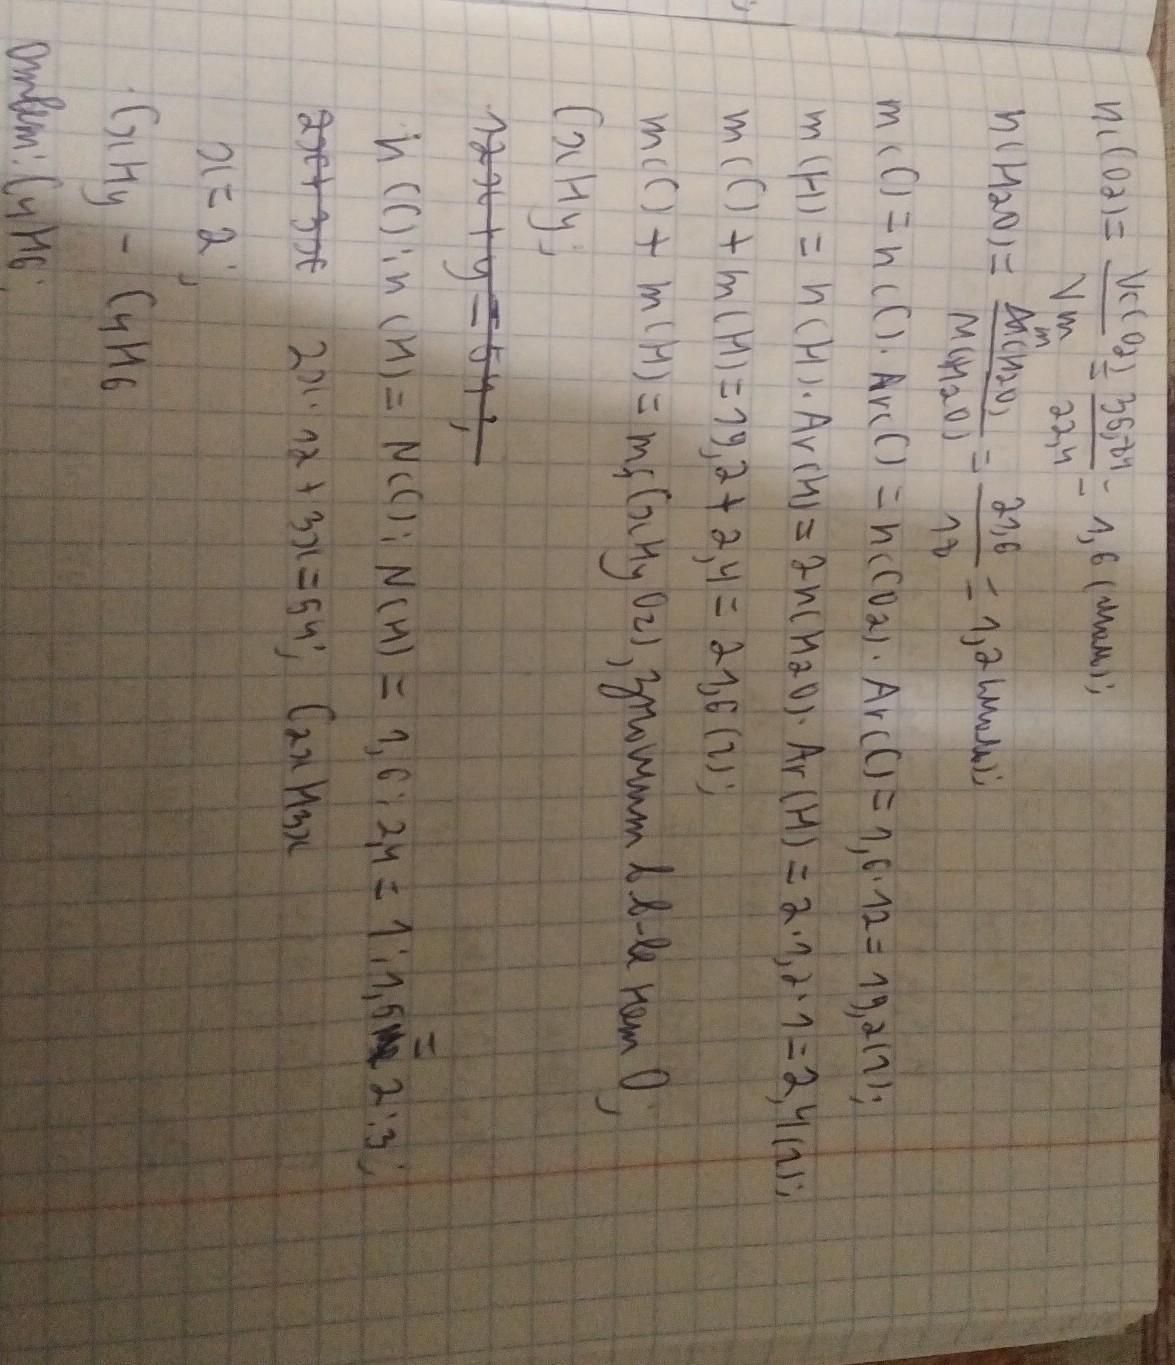 n(CO2) = V(CO2) / Vm = 35,84 / 22,4 = 1,6 (моль);
n(H2O) = m(H2O) / M(H2O) = 21,6 / 18 = 1,2 (моль);
m(C) = n(C) · Ar(C) = n(CO2) · Ar(C) = 1,6 · 12 = 19,2 (г);
m(H) = n(H) · Ar(H) = 2n(H2O) · Ar(H) = 2 · 1,2 · 1 = 2,4 (г);
m(C) + m(H) = 19,2 + 2,4 = 21,6 (г);
m(C) + m(H) = m(CxHyOz), значит в в-ве нет O;
CxHy;
12x + y = 54;
n(C) : n(H) = N(C) : N(H) = 1,6 : 2,4 = 1 : 1,5 = 2 : 3;
2x + 3x 2x · 12 + 3x = 54; C2xH3x
x = 2;
CxHy - C4H6
Ответ: C4H6;